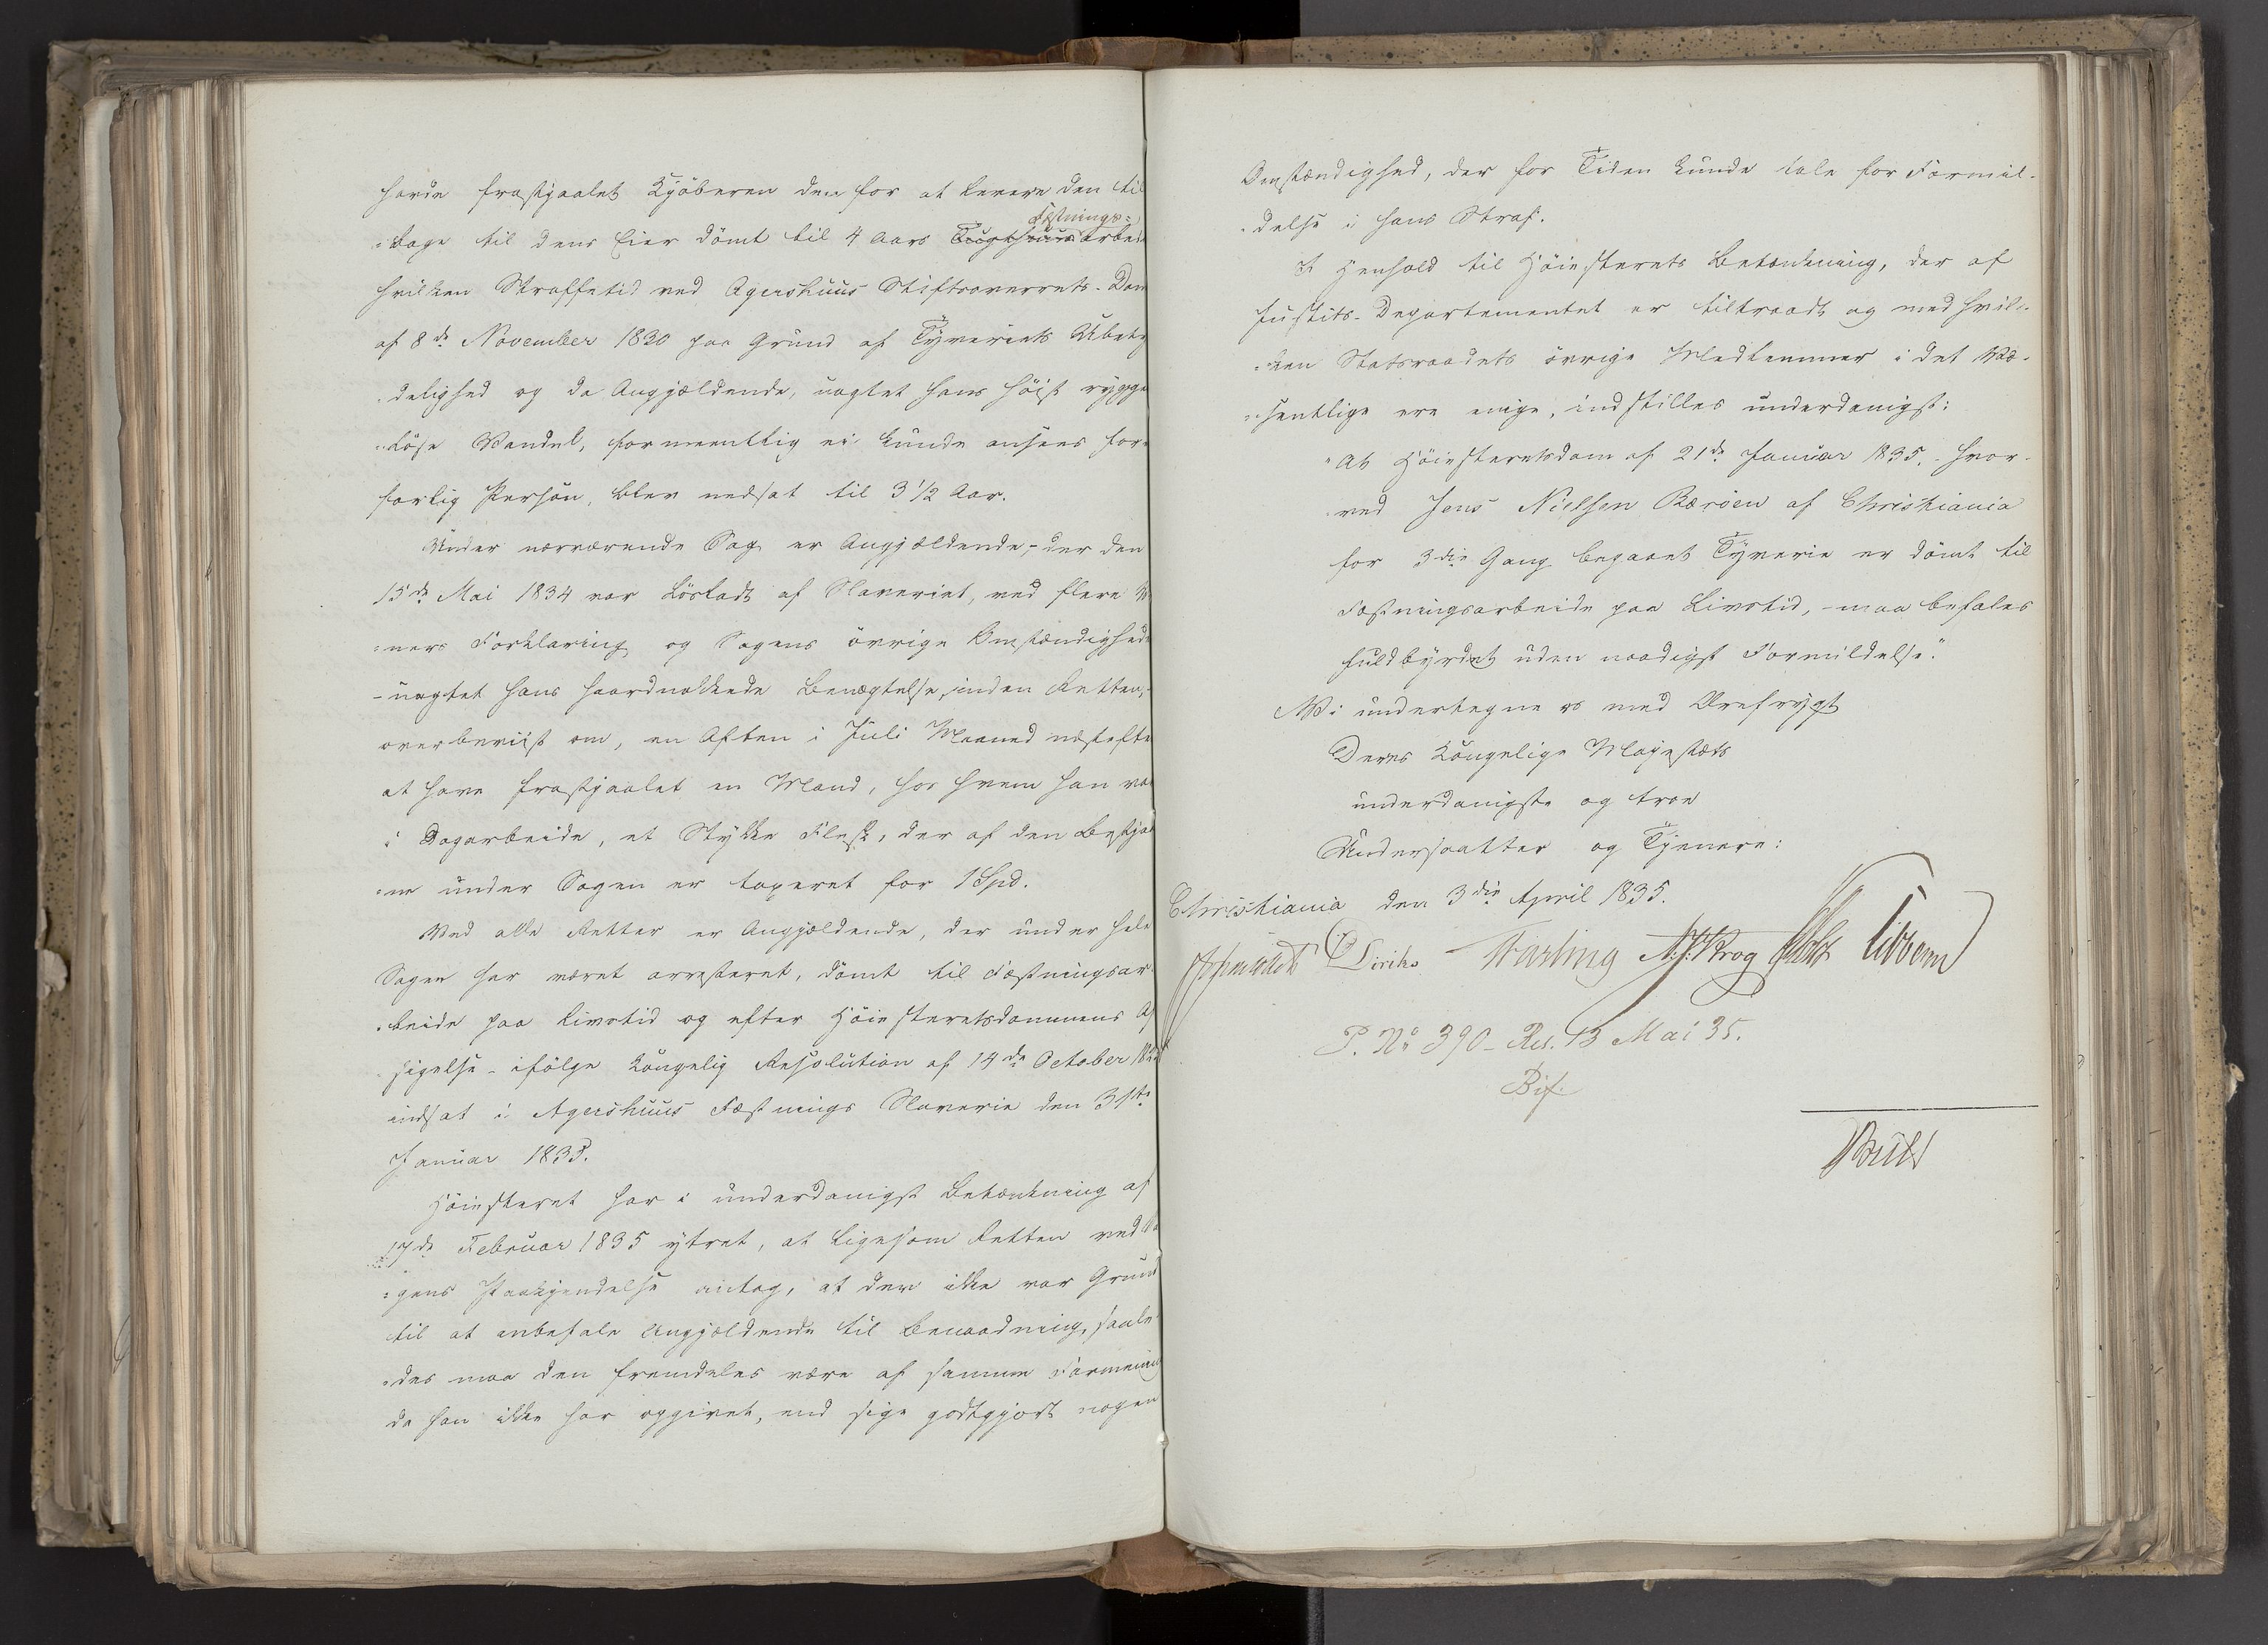 havde frastjaalet Kjøberen den for at levere den til
Fæstnings-
„bage til dens Eier dömt til 4 Aars Tugthuusarbei
hvilken Straffetid ved Agershuus Stiftsoverrets-Dom
af 8de November 1830 paa Grund af Tyveriets Ubety
„delighed og da Angjældende, uagtet hans høist rygges
„løse Vandel, formeentlig ei kunde ansees for
farlig Person, blev nedsat til 3 1/2 Aar.
Under nærværende Sag er Angjældende, - der den
15de Mai 1834 var løsladt af Slaveriet, ved flere Vi
„ners Forklaring og Sagens øvrige Omstændighede
- uagtet hans haardnakkede Benægtelse, inden Retten, -
overbeviist om, en Aften i Juli Maaned næstefte
at have frastjaalet en Mand, hos hvem han var
i Dagarbeide, et Stykke Flesk, der af den Bestjaal
„ne under Sagen er taxeret for 1 Spd.
Ved alle Retter er Angjældende, der under hele
Sagen har været arresteret, dömt til Fæstningsar
„beide paa Livstid og efter Høiesteretsdommens Af
sigelse - ifølge Kongelig Resolution af 14de October 18
indsat i Agershuus Fæstnings Slaverie den 31te
Januar 1835.
Høiesteret har i underdanigst Betænkning af
17de Februar 1835 ytret, at ligesom Retten ved Sa
„gens Paakjendelse antog, at der ikke var Grund
til at anbefale Angjældende til Benaadning, saale
„des maa den fremdeles være af samme Formening
da han ikke har opgivet, end sige godtgjort nogen
Omstændighed, der for Tiden kunde tale for Formil-
„delse i hans Straf.
I Henhold til Høiesterets Betænkning, der af
Justits-Departementet er tiltraadt og med hvil-
„ken Statsraadets øvrige Medlemmer i det Væ-
„sentlige ere enige, indstilles underdanigst:
"At Høiesteretsdom af 21de Januar 1835, - hvor-
ved Jens Nielsen Bærøen af Christiania
for 3die Gang begaaet Tyverie er dömt til
Fæstningsarbeide paa Livstid, - maa befales
fuldbyrdet uden naadigst Formildelse."
Vi undertegne os med Ærefrygt
Deres Kongelige Majestæts
underdanigste og troe
Undersaatter og Tjenere:
Christiania den 3die April 1835.
Diriks Vogt Krog Holst Sibbern
P. No 390 - Res. 13 Mai 35.
Bif.